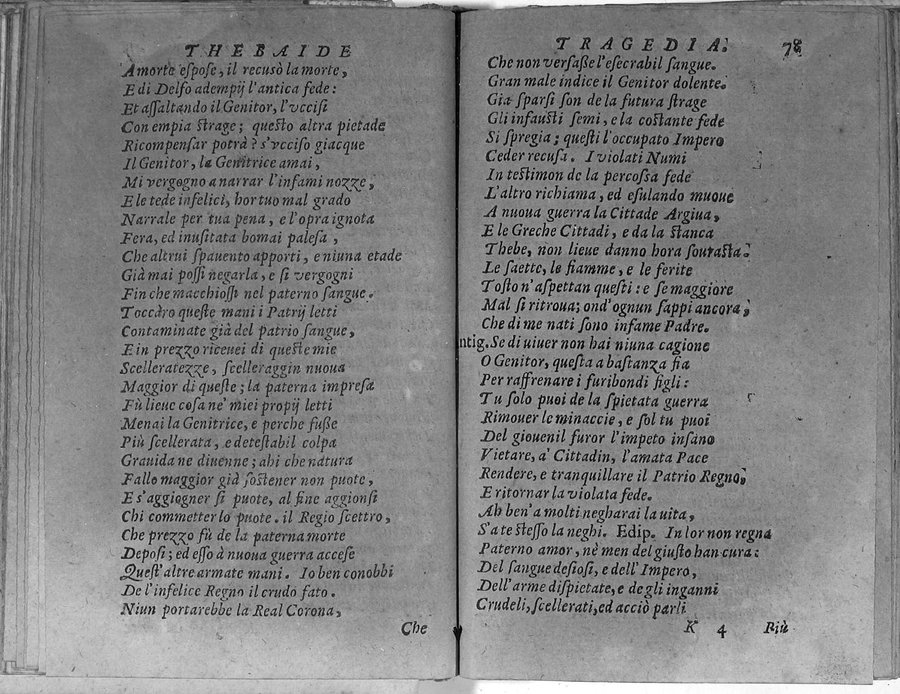 THEBAIDE
A morte espose, il recusò la morte,
E di Delfo adempij l'antica fede:
Et assaltando il Genitor, l'vccisi
Con empia strage; questo altra pietade
Ricompensar potrà? s'vcciso giacque
Il Genitor, la Genitrice amai,
Mi vergogno a narrar l'infami nozze,
E le tede infelici, hor tuo mal grado
Narrale per tua pena, e l'opra ignota
Fera, ed inusitata homai palesa,
Che altrui spauento apporti, e niuna etade
Già mai possi negarla, e si vergogni
Fin che macchiossi nel paterno sangue.
Toccàro queste mani i Patrij letti
Contaminate già del patrio sangue,
E in prezzo riceuei di queste mie
Scelleratezze, scelleraggin nuoua
Maggior di queste; la paterna impresa
Fù lieue cosa ne' miei proprij letti
Menai la Genitrice, e perche fuße
Più scellerata, e detestabil colpa
Grauida ne diuenne; ahi che natura
Fallo maggior già sostener non puote,
E s'aggiogner si puote, al fine aggionsi
Chi commetter lo puote. il Regio scettro,
Che prezzo fù de la paterna morte
Deposi; ed esso à nuoua guerra accese
Quest'altre armate mani. Io ben conobbi
De l'infelice Regno il crudo fato.
Niun portarebbe la Real Corona,
Che
TRAGEDIA. 78
Che non versaße l'esecrabil sangue.
Gran male indice il Genitor dolente.
Gia sparsi son de la futura strage
Gli infausti semi, e la costante fede
Si spregia; questi l'occupato Impero
Ceder recusa. I violati Numi
In testimon de la percossa fede
L'altro richiama, ed esulando muoue
A nuoua guerra la Cittade Argiua,
E le Greche Cittadi, e da la stanca
Thebe, non lieue danno hora sourasta.
Le saette, le fiamme, e le ferite
Tosto n'aspettan questi: e se maggiore
Mal si ritroua; ond'ognun sappi ancora,
Che di me nati sono infame Padre.
ntig. Se di uiuer non hai niuna cagione
O Genitor, questa a bastanza fia
Per raffrenare i furibondi figli:
Tu solo puoi de la spietata guerra
Rimouer le minaccie, e sol tu puoi
Del giouenil furor l'impeto insano
Vietare, a' Cittadin, l'amata Pace
Rendere, e tranquillare il Patrio Regno,
E ritornar la violata fede.
Ah ben' a molti negharai la uita,
S'a te stesso la neghi. Edip. In lor non regna
Paterno amor, nè men del giusto han cura:
Del sangue desiosi, e dell'Impero,
Dell'arme dispietate, e de gli inganni
Crudeli, scellerati, ed acciò parli
K 4 Più